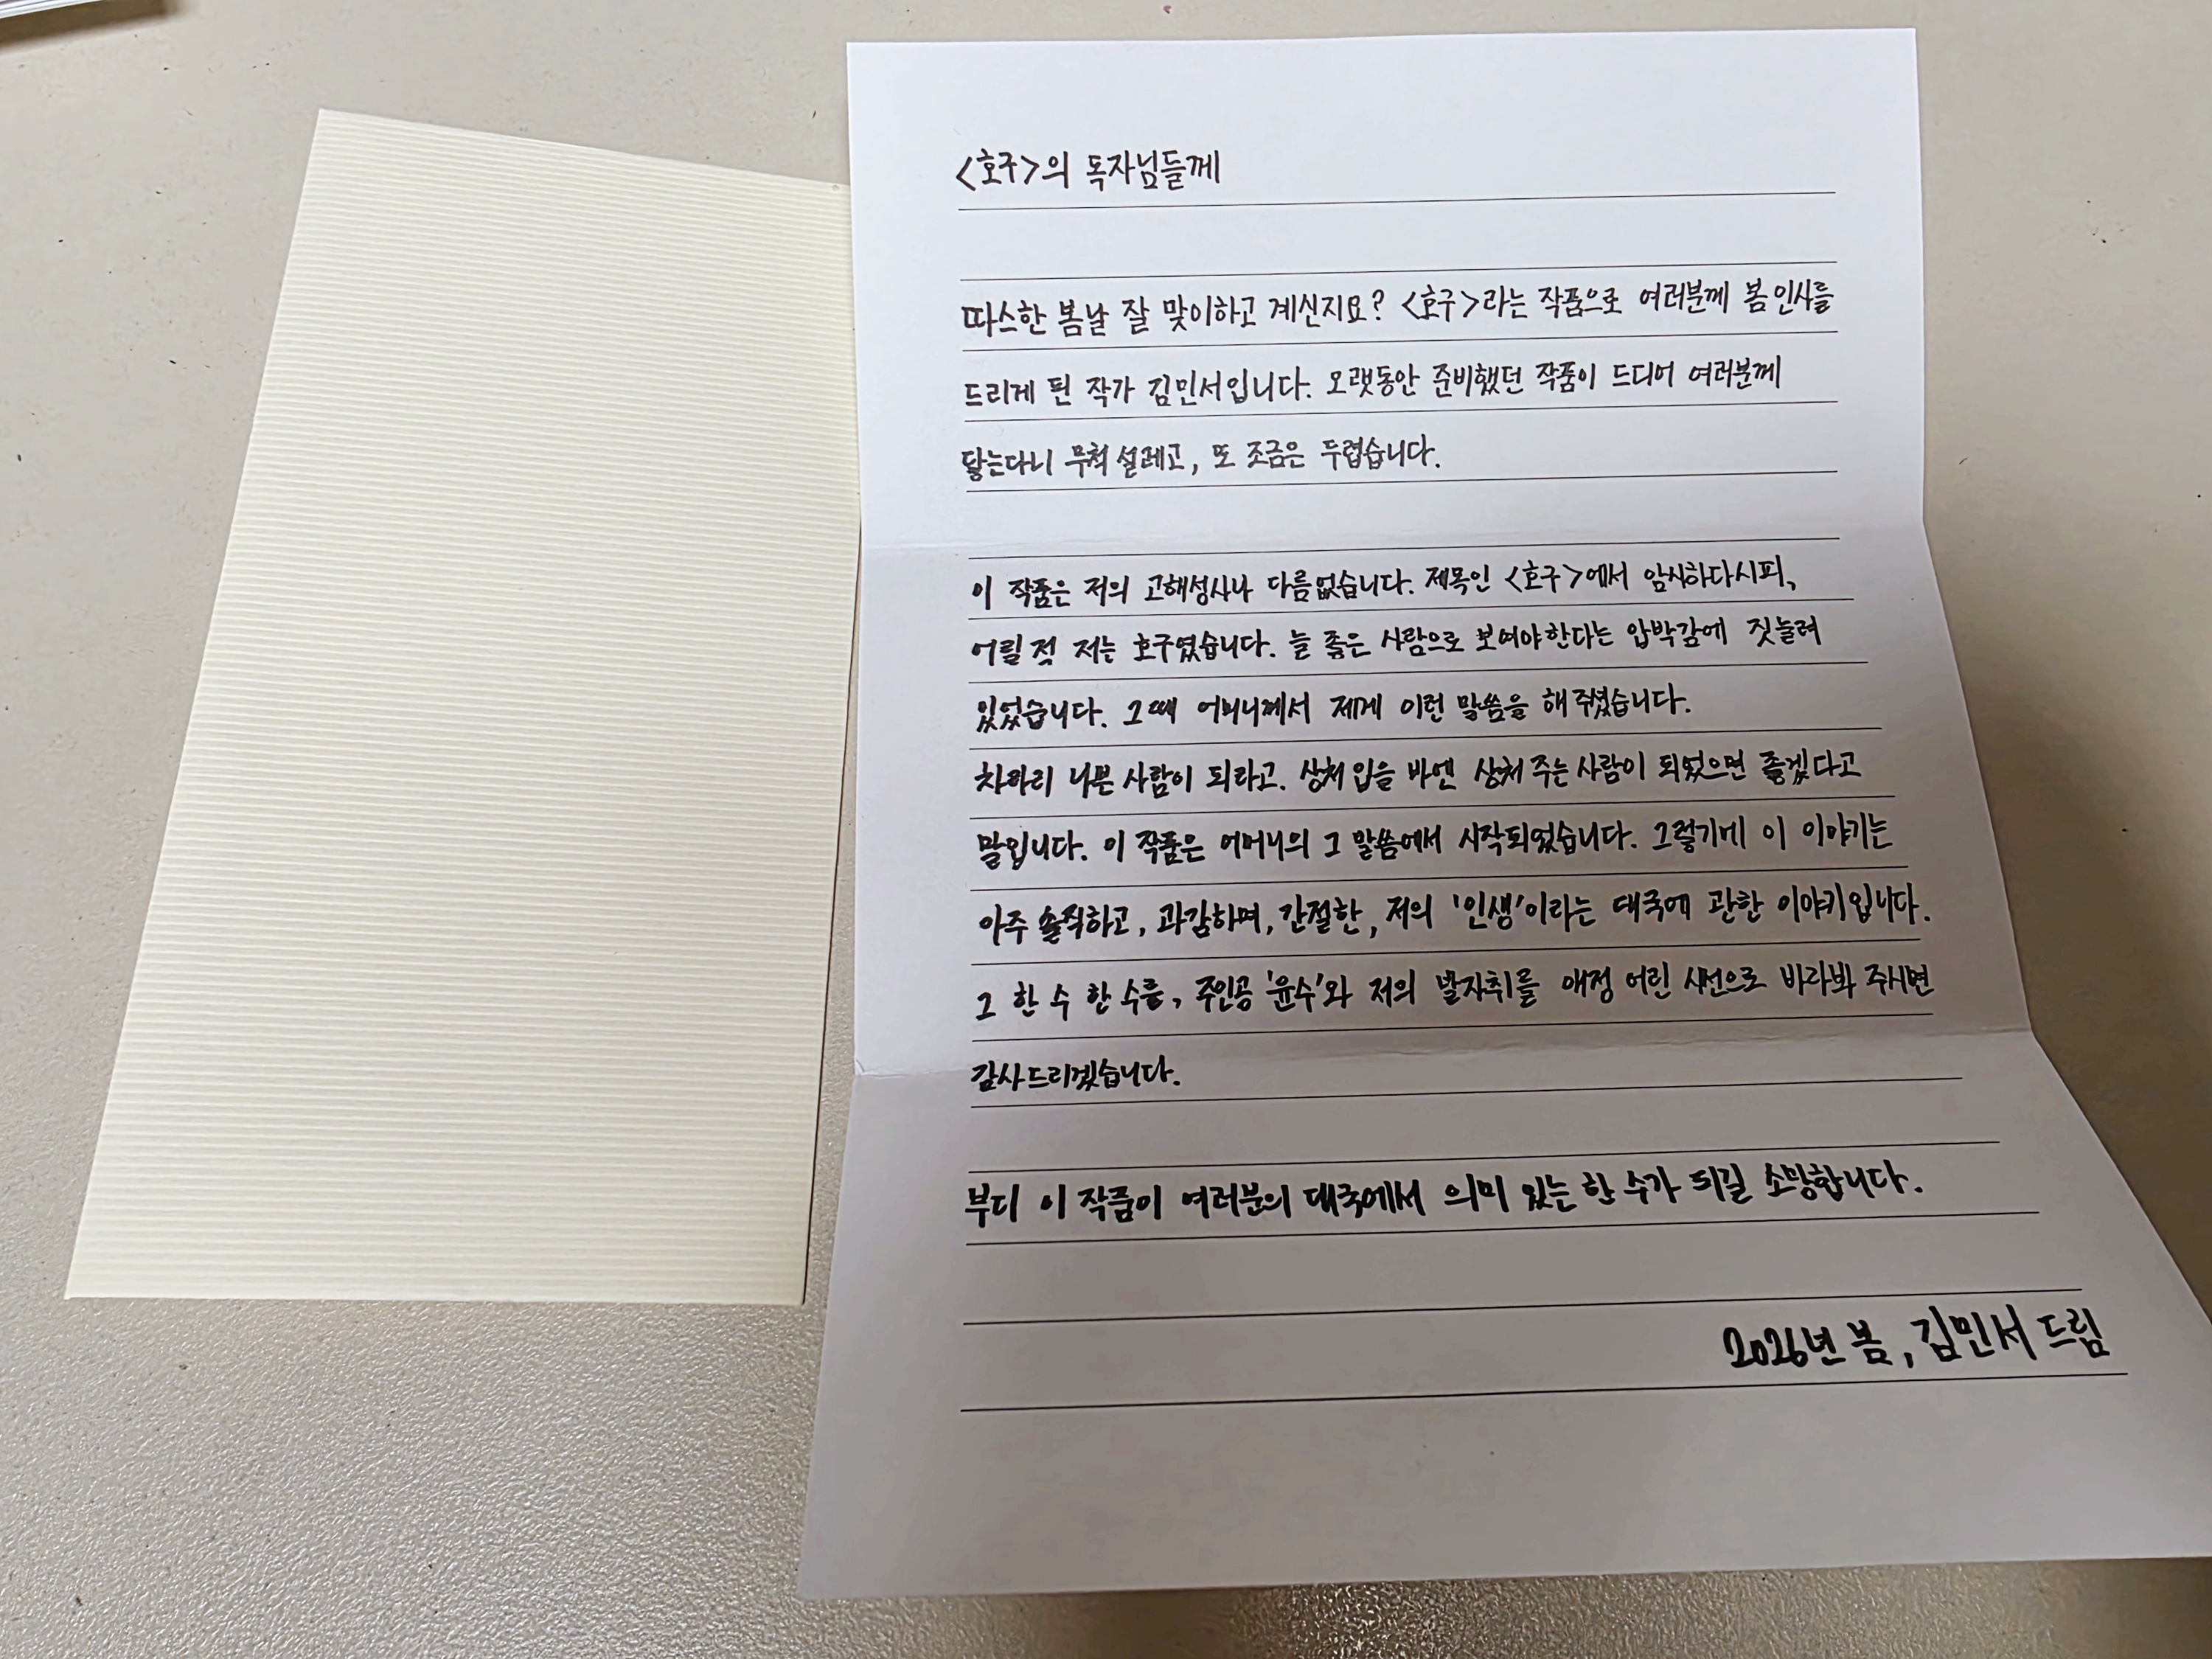 <호구>의 독자님들께
따스한 봄날 잘 맞이하고 계신지요? <호구>라는 작품으로 여러분께 봄 인사를
드리게 된 작가 김민서입니다. 오랫동안 준비했던 작품이 드디어 여러분께
닿는다니 무척 설레고, 또 조금은 두렵습니다.
이 작품은 저의 고해성사나 다름없습니다. 제목인 <호구>에서 암시하다시피,
어릴 적 저는 호구였습니다. 늘 좋은 사람으로 보여야한다는 압박감에 짓눌려
있었습니다. 그때 어머니께서 제게 이런 말씀을 해 주셨습니다.
차라리 나쁜 사람이 되라고. 상처 입을 바엔 상처 주는 사람이 되었으면 좋겠다고
말입니다. 이 작품은 어머니의 그 말씀에서 시작되었습니다. 그렇기에 이 이야기는
아주 솔직하고, 과감하며, 간절한, 저의 '인생'이라는 대국에 관한 이야기입니다.
그 한 수 한 수를, 주인공 '윤수'와 저의 발자취를 애정 어린 시선으로 바라봐 주시면
감사드리겠습니다.
부디 이 작품이 여러분의 대국에서 의미 있는 한 수가 되길 소망합니다.
2026년 봄, 김민서 드림